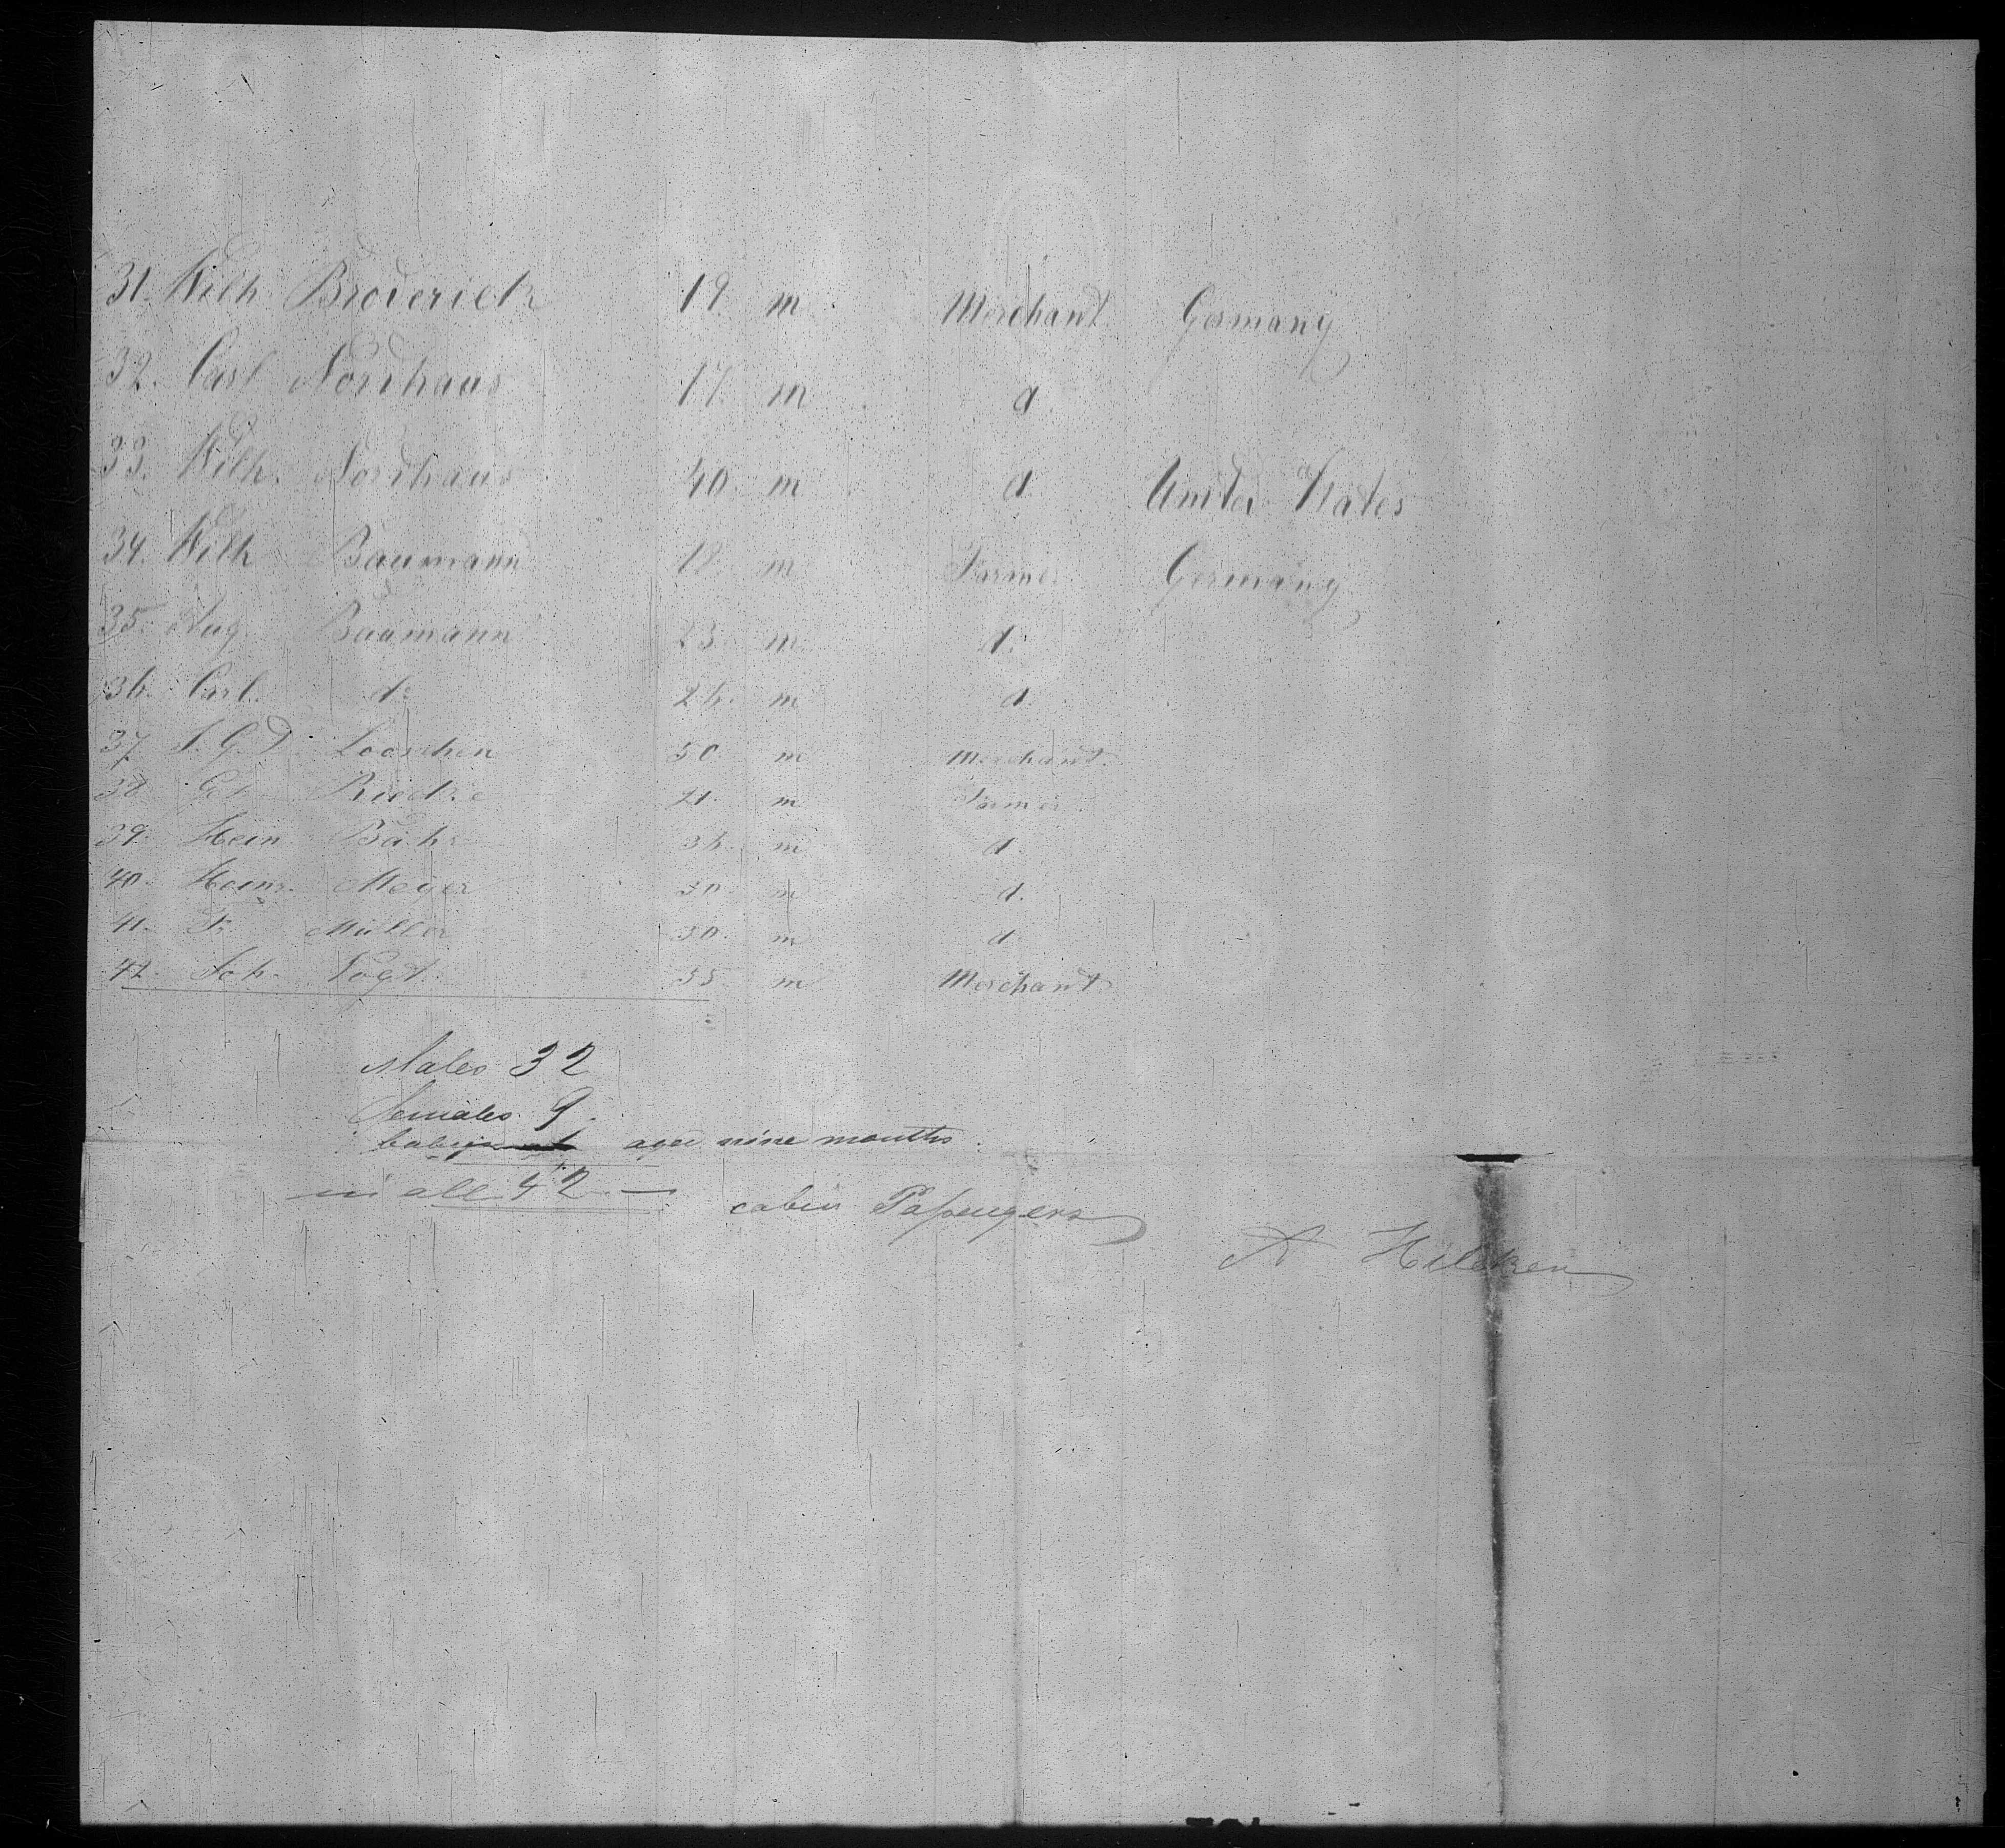 31. Wilh. Broderick 19. m. Merchant Germany
32. Carl Nordhaus 17. m. d.
33. Wilh. Nordhaus 40. m. d. United States
34. Wilh Baumann 18. m Farmer Germany
35. Aug. Baumann 23. m. d.
36. Carl. do 26. m d.
37. J. G. D. Looschen 50. m Merchant.
38 Riecke 21. m Farmer
39. Hein Bahr 36. m d.
40. Heinr. Meyer 30. m d.
41. Fr. Müller 30. m d.
42. Joh. Vogt. 35. m Merchant
Males 32
Females. 9.
babys 1 aged nine months.
in all 42 — cabin Passengers
A Hilcken